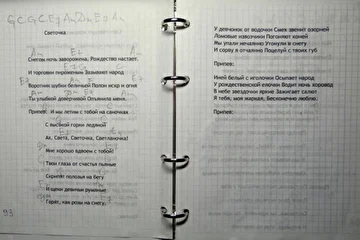 G C G C E7 Am Dm E Am
Светочка
Снегом ночь заворожена, Рождество настает.
И торговки пирожками Зазывают народ
Воротник шубки беличьей Полон искр и огня
Ты улыбкой доверчивой Опьянила меня.
Припев: И мы летим с тобой на саночках
С высокой горки ледяной
Ах, Света, Светочка, Светланочка!
Мне хорошо вдвоем с тобой!
Твои глаза от счастья пьяные
Скрипят полозья на бегу
И щеки девичьи румяные
Горят, как розы на снегу.
93
У девчонки от водочки Смех звенит озорней
Ломовые извозчики Погоняют коней
Мы упали нечаянно Утонули в снегу
И сорву я отчаянно Поцелуй с твоих губ
Припев:
Иней белый с иголочек Осыпает народ
У рождественской елочки Водит ночь хоровод
В небе звездочки яркие Зажигает салют
Я тебя, моя жаркая, Бесконечно люблю.
Припев: